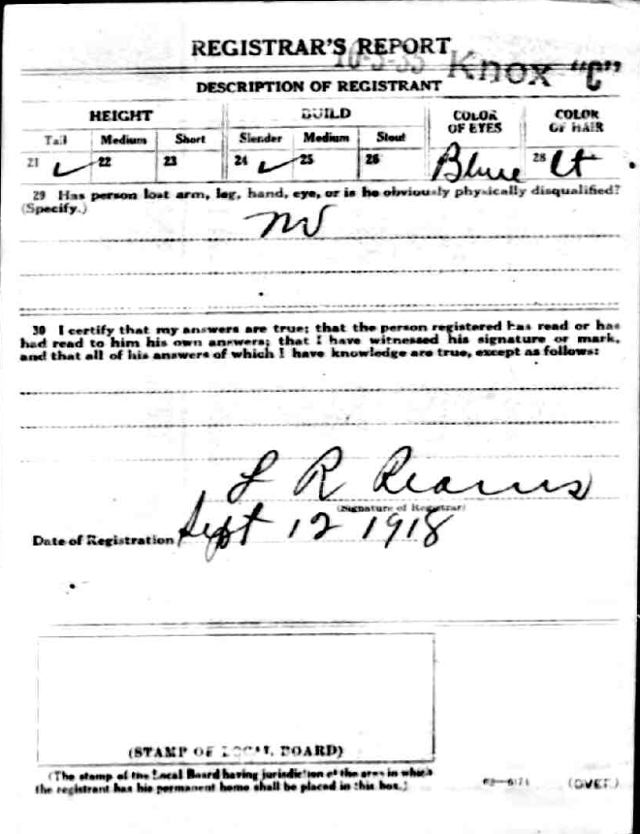 REGISTRAR'S REPORT
10-3-35 Knox "C"
DESCRIPTION OF REGISTRANT
HEIGHT BUILD COLOR OF EYES COLOR OF HAIR
Tall Medium Short Slender Medium Stout
21 ✓ 22 23 24 ✓ 25 26 Blue 28 Lt
29 Has person lost arm, leg, hand, eye, or is he obviously physically disqualified?
(Specify.)
No
30 I certify that my answers are true; that the person registered has read or has
had read to him his own answers; that I have witnessed his signature or mark,
and that all of his answers of which I have knowledge are true, except as follows:
L R Reams
(Signature of Registrar)
Date of Registration Sept 12 1918
(STAMP OF LOCAL BOARD)
(The stamp of the Local Board having jurisdiction of the area in which
the registrant has his permanent home shall be placed in this box.)
(OVER)